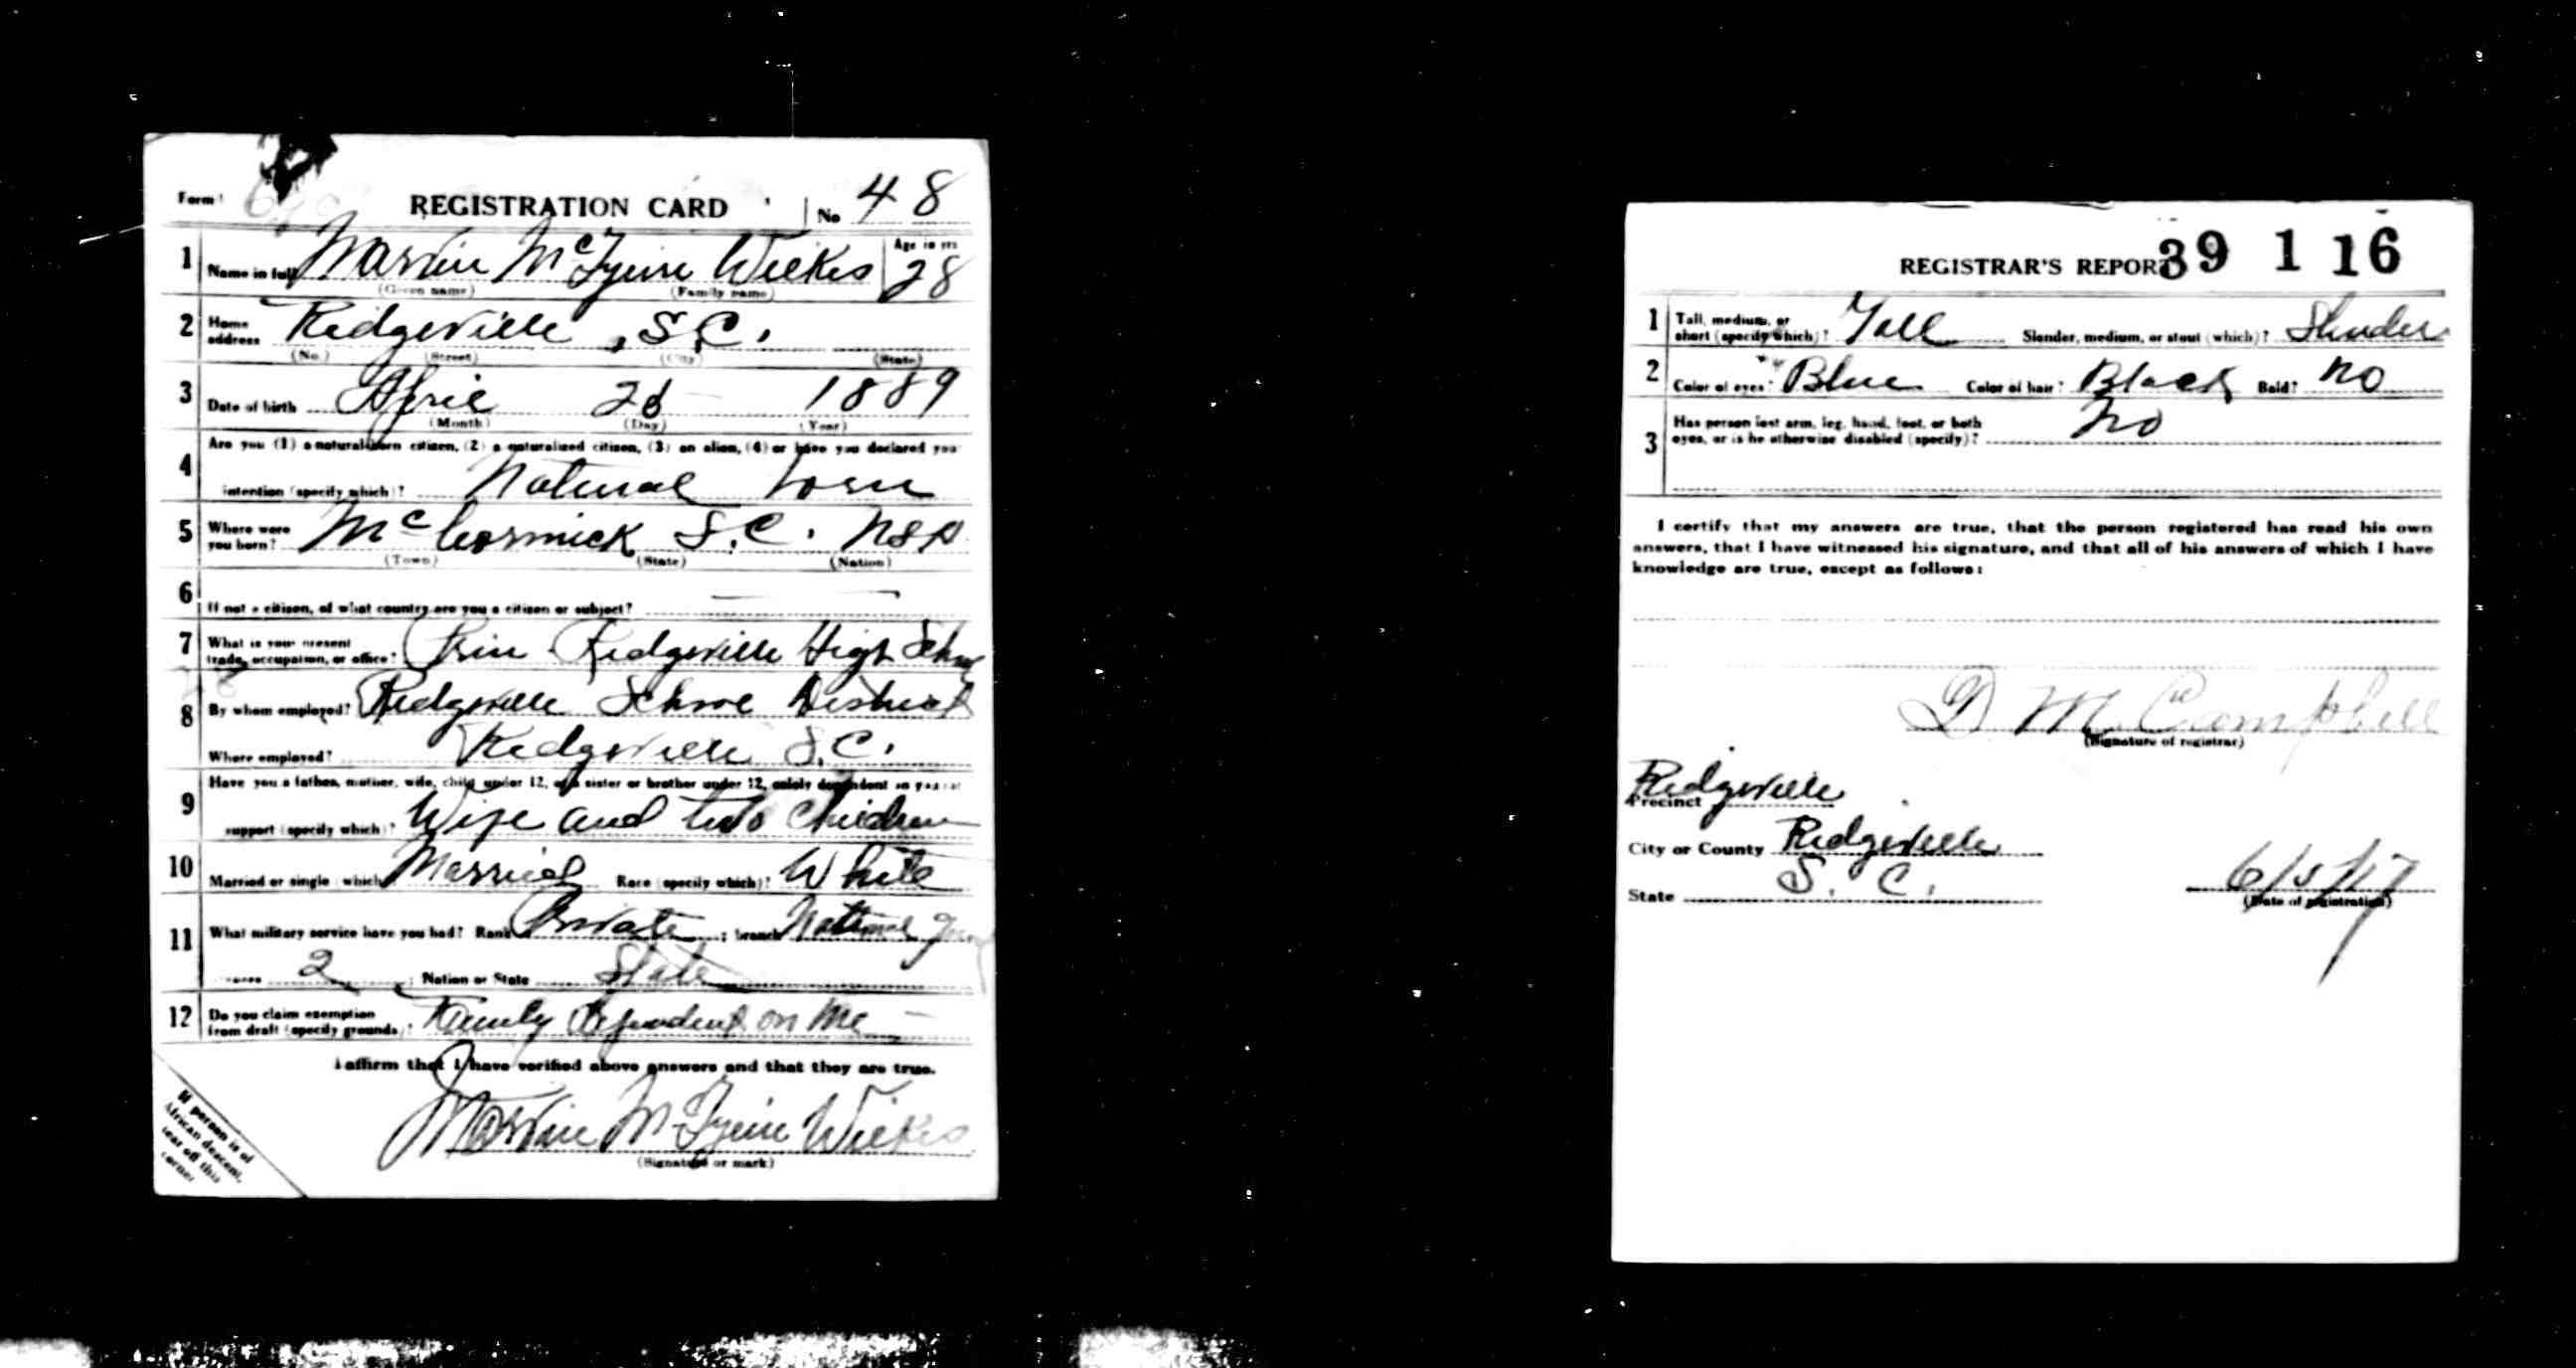 Form 1 REGISTRATION CARD No 48
1 Name in full Marvin McTyeire Wilkes Age in yrs 28
(Given name) (Family name)
2 Home address Ridgeville, S.C.
(No.) (Street) (City) (State)
3 Date of birth April 28 1889
(Month) (Day) (Year)
4 Are you (1) a natural-born citizen, (2) a naturalized citizen, (3) an alien, (4) or have you declared your
intention (specify which)? Natural born
5 Where were you born? McCormick S.C. USA
(Town) (State) (Nation)
6 If not a citizen, of what country are you a citizen or subject?
7 What is your present trade, occupation, or office? Prin Ridgeville High School
8 By whom employed? Ridgeville School District
Where employed? Ridgeville S.C.
9 Have you a father, mother, wife, child under 12, or a sister or brother under 12, solely dependent on you for
support (specify which)? Wife and two children
10 Married or single (which)? Married Race (specify which)? White
11 What military service have you had? Rank Private ; branch National Guard
years 2 ; Nation or State State
12 Do you claim exemption from draft (specify grounds)? Family Dependent on Me
I affirm that I have verified above answers and that they are true.
Marvin McTyeire Wilkes
(Signature or mark)
If person is of
African descent,
tear off this
corner
REGISTRAR'S REPORT 39 1 16
1 Tall, medium, or short (specify which)? Tall Slender, medium, or stout (which)? Slender
2 Color of eyes? Blue Color of hair? Black Bald? No
3 Has person lost arm, leg, hand, foot, or both eyes, or is he otherwise disabled (specify)? No
I certify that my answers are true, that the person registered has read his own
answers, that I have witnessed his signature, and that all of his answers of which I have
knowledge are true, except as follows:
D M Campbell
(Signature of registrar)
Precinct Ridgeville
City or County Ridgeville
State S. C. 6/5/17
(Date of registration)